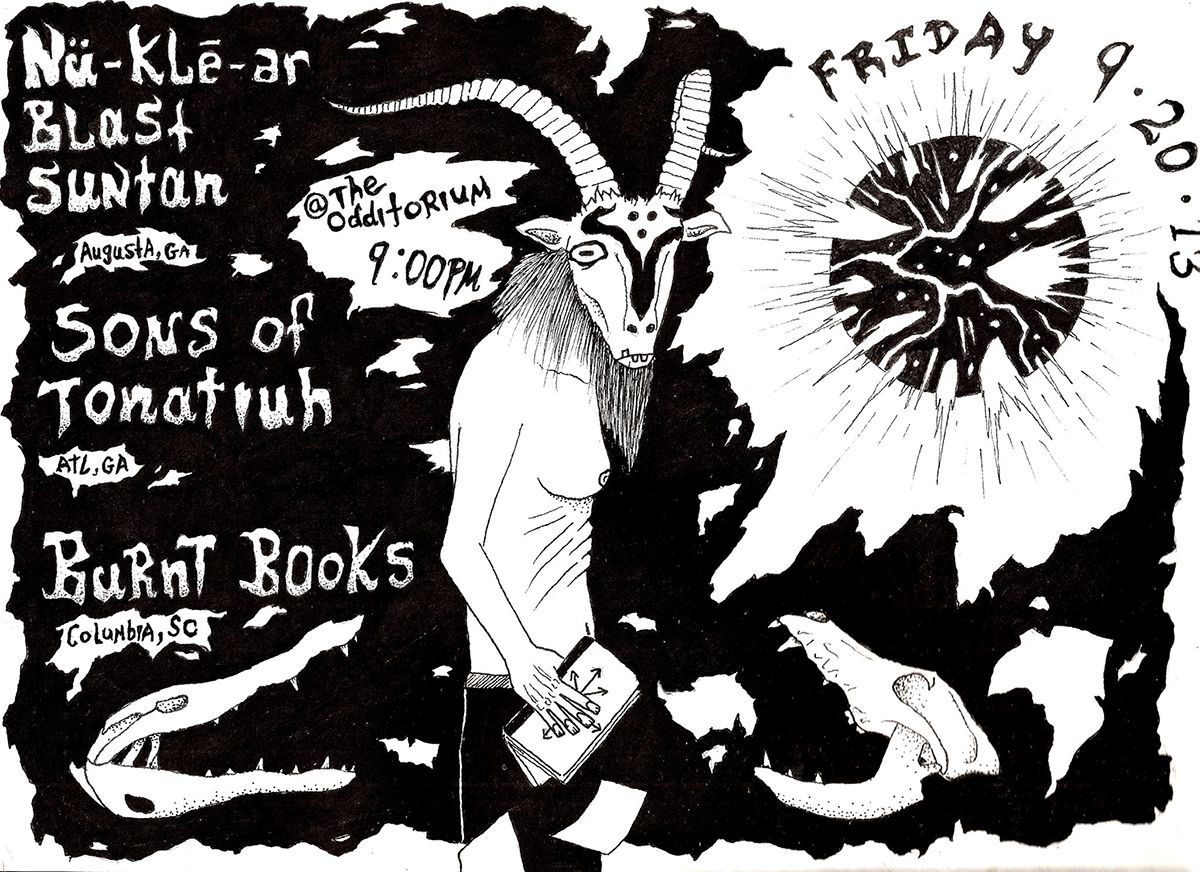 Nü-Klē-ar
Blast
Suntan
Augusta, GA
Sons of
Tonatiuh
ATL, GA
Burnt Books
Columbia, SC
@ The
Odditorium
9:00PM
FRIDAY 9.20.13